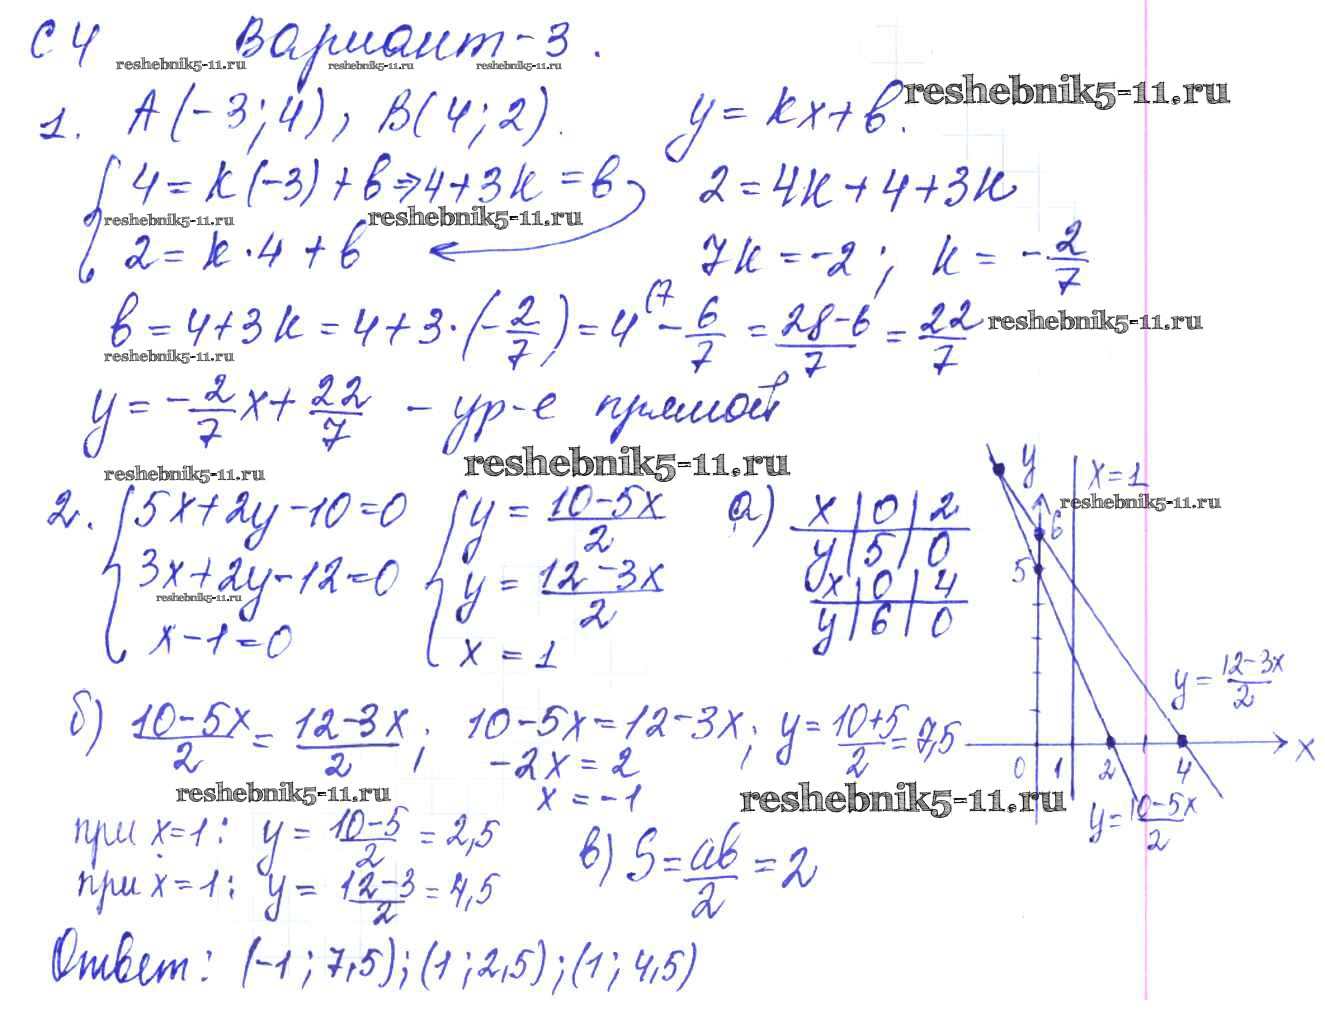 С 4 Вариант-3.
reshebnik5-11.ru reshebnik5-11.ru reshebnik5-11.ru
1. A(-3;4), B(4;2). y = kx+b. reshebnik5-11.ru
{ 4 = k(-3) + b ⇒ 4+3k = b 2 = 4k + 4 + 3k
reshebnik5-11.ru reshebnik5-11.ru
2 = k·4 + b 7k = -2 ; k = -2/7
b = 4+3k = 4+3·(-2/7) = 4(7 - 6/7 = 28-6/7 = 22/7 reshebnik5-11.ru
reshebnik5-11.ru
y = -2/7 x + 22/7 - ур-е прямой
reshebnik5-11.ru reshebnik5-11.ru
2. { 5x+2y-10=0 { y = 10-5x/2 а) x | 0 | 2
3x+2y-12=0 y = 12-3x/2 y | 5 | 0
reshebnik5-11.ru x | 0 | 4
x-1=0 x = 1 y | 6 | 0
y x=1
reshebnik5-11.ru
6
5
y = 12-3x/2
0 1 2 4 x
y = 10-5x/2
б) 10-5x/2 = 12-3x/2 ; 10-5x=12-3x ; y = 10+5/2 = 7,5
-2x = 2
reshebnik5-11.ru x = -1 reshebnik5-11.ru
при x=1: y = 10-5/2 = 2,5 в) S = ab/2 = 2
при x=1: y = 12-3/2 = 4,5
Ответ: (-1; 7,5); (1; 2,5); (1; 4,5)